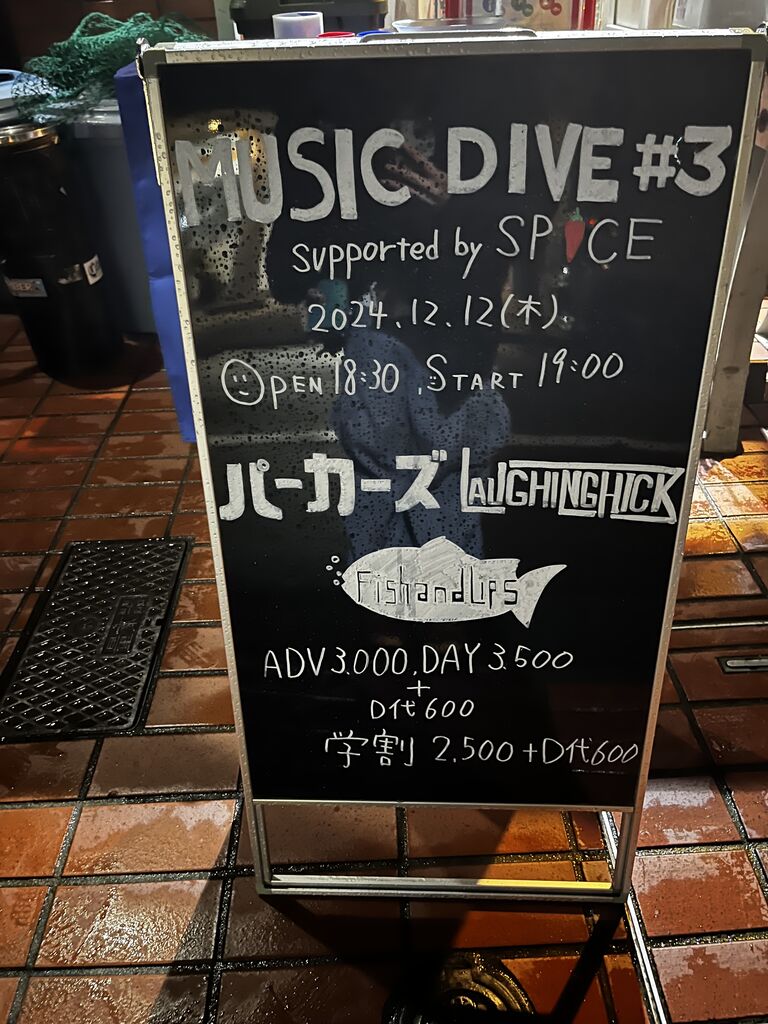 MUSIC DIVE #3
supported by SPICE
2024.12.12(木).
OPEN 18:30 .START 19:00
パーカーズ LAUGHINGHICK
FishandLips
ADV 3.000.DAY 3.500
+
D代 600
学割 2.500 + D代600